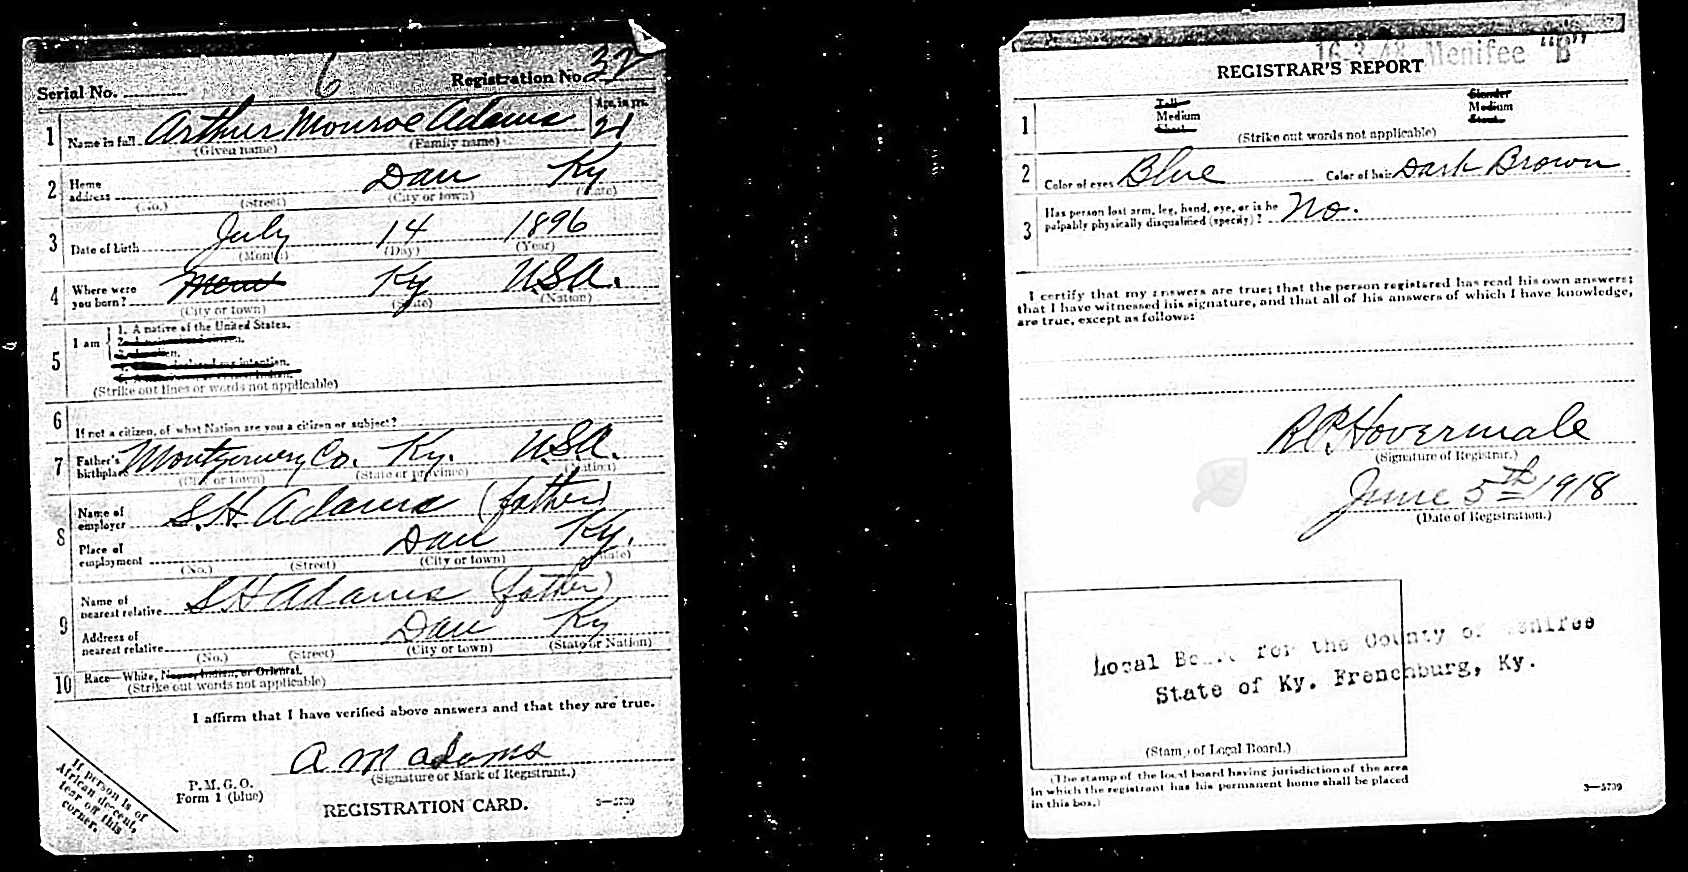 6
Serial No. Registration No. 32
1 Name in full Arthur Monroe Adams Age, in yrs. 21
(Given name) (Family name)
2 Home address Dan Ky
(No.) (Street) (City or town) (State)
3 Date of birth July 14 1896
(Month) (Day) (Year)
4 Where were you born? Ky U.S.A.
(City or town) (State) (Nation)
5 I am 1. A native of the United States.
(Strike out lines or words not applicable)
6 If not a citizen, of what Nation are you a citizen or subject?
7 Father's birthplace Montgomery Co. Ky. U.S.A.
(City or town) (State or province) (Nation)
8 Name of employer S.H. Adams (father)
Place of employment Dan Ky.
(No.) (Street) (City or town) (State)
9 Name of nearest relative S H Adams (father)
Address of nearest relative Dan Ky
(No.) (Street) (City or town) (State or Nation)
10 Race—White, Negro, Indian, or Oriental.
(Strike out words not applicable)
I affirm that I have verified above answers and that they are true.
A M Adams
P.M.G.O. (Signature or Mark of Registrant.)
Form 1 (blue)
REGISTRATION CARD. 3—5739
If person is of
African decent,
tear off this
corner.
16-3-48 Menifee "B"
REGISTRAR'S REPORT
1 Tall Slender
Medium Medium
Short Stout
(Strike out words not applicable)
2 Color of eyes Blue Color of hair Dark Brown
3 Has person lost arm, leg, hand, eye, or is he
palpably physically disqualified (specify)? No.
I certify that my answers are true; that the person registered has read his own answers;
that I have witnessed his signature, and that all of his answers of which I have knowledge,
are true, except as follows:
R.P. Hovermale
(Signature of Registrar.)
June 5th 1918
(Date of Registration.)
Local Board for the County of Menifee
State of Ky. Frenchburg, Ky.
(Stamp of Local Board.)
(The stamp of the local board having jurisdiction of the area
in which the registrant has his permanent home shall be placed
in this box.)
3—5739